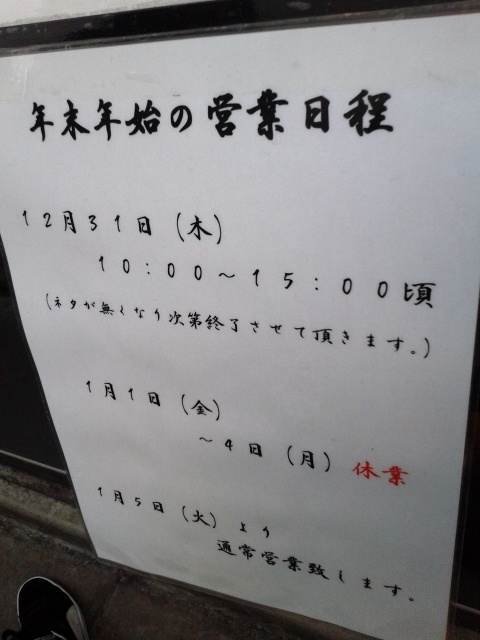 年末年始の営業日程
12月31日（木）
10：00〜15：00頃
（ネタが無くなり次第終了させて頂きます。）
1月1日（金）
〜4日（月）休業
1月5日（火）より
通常営業致します。